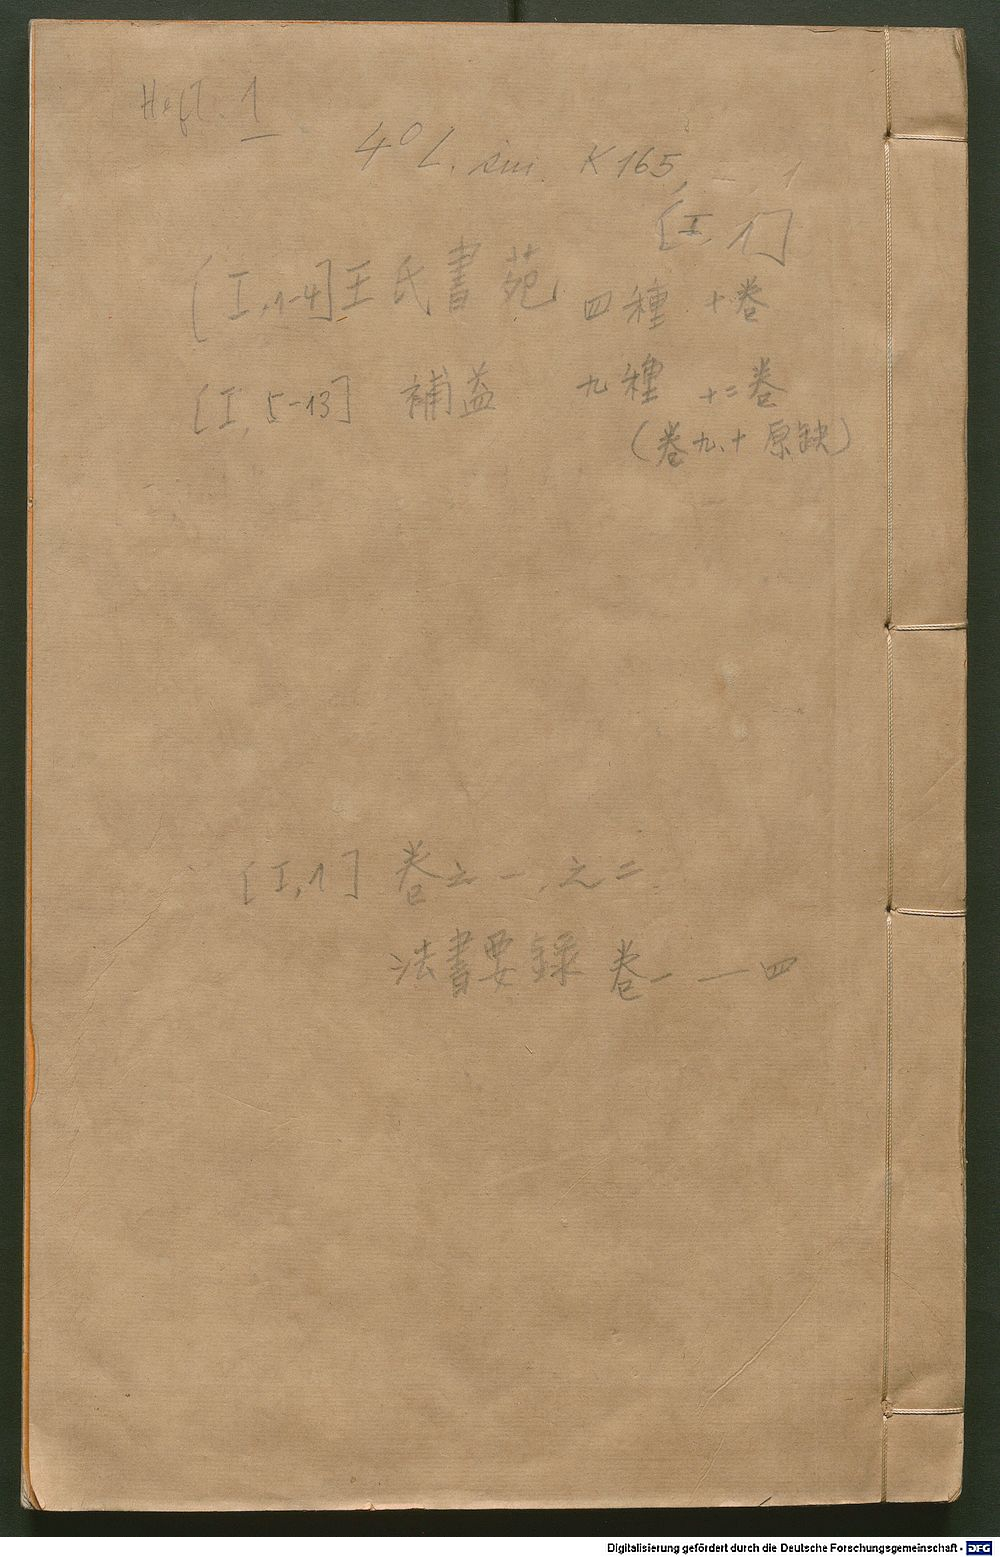 Heft. 1
4° L. sin. K 165, —, 1
[I, 1]
[I, 1-4] 王氏書苑 四種 十卷
[I, 5-13] 補益 九種 十二卷
(卷九、十 原缺)
[I, 1] 卷之一, 之二
法書要録 卷一 — 四
Digitalisierung gefördert durch die Deutsche Forschungsgemeinschaft - DFG